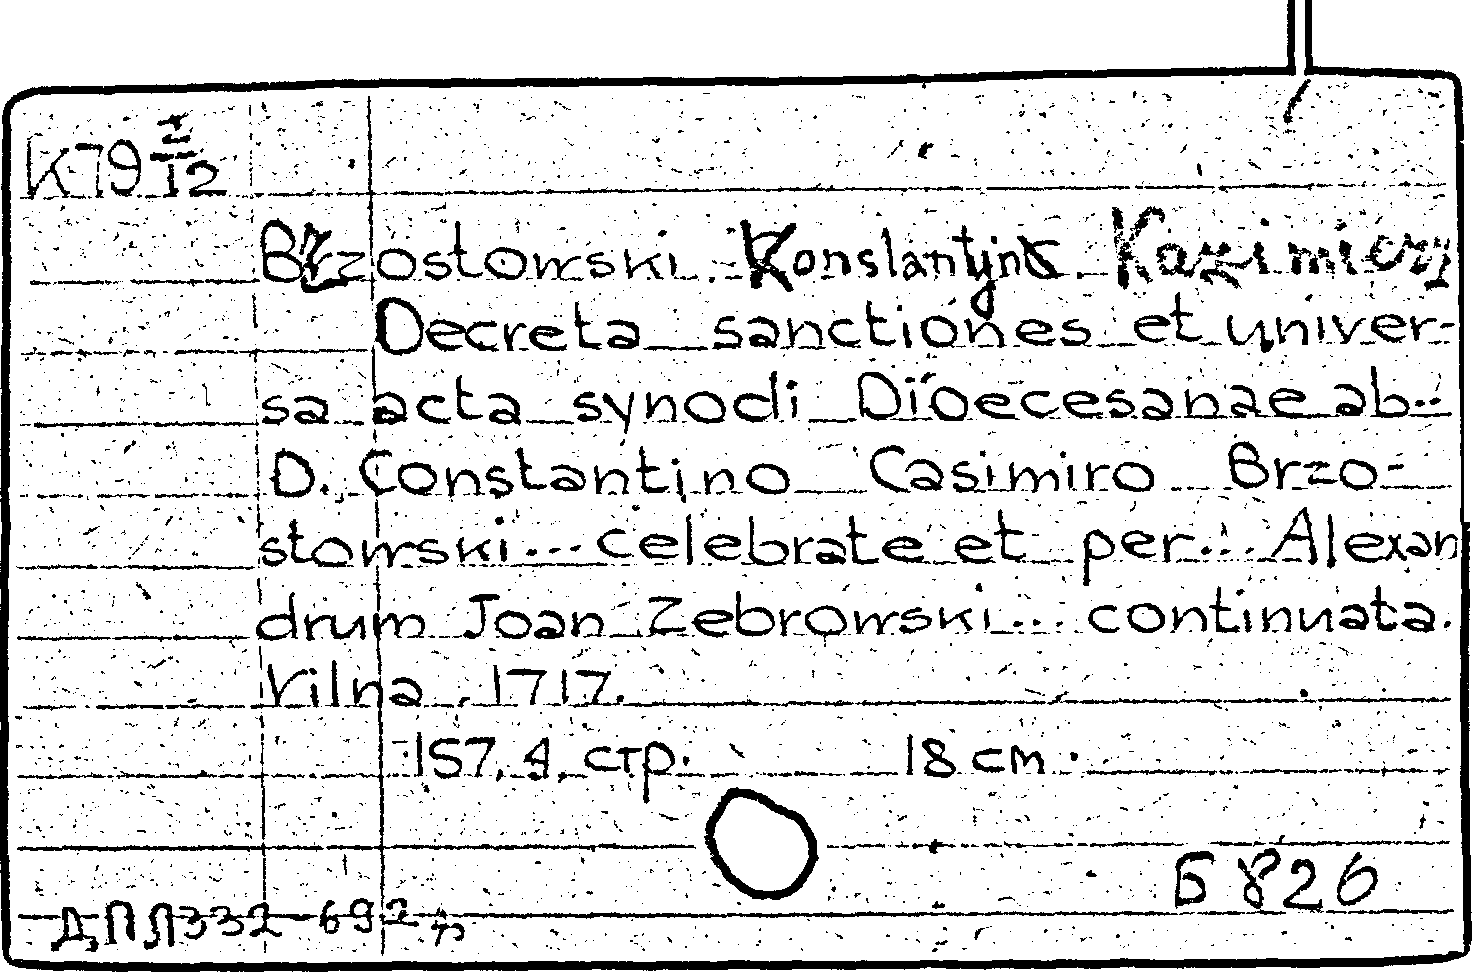 K79 I/12
Brzostowski Konstantyn. Kazimierz
Decreta sanctiones et univer-
sa acta synodi Dioecesanae ab..
D. Constantino Casimiro Brzo-
stowski... celebrate et per... Alexan
drum Joan Zebrowski... continuata.
Vilna. 1717.
157, 4, стр. 18 cm.
Б 826
ДПЛ332-692